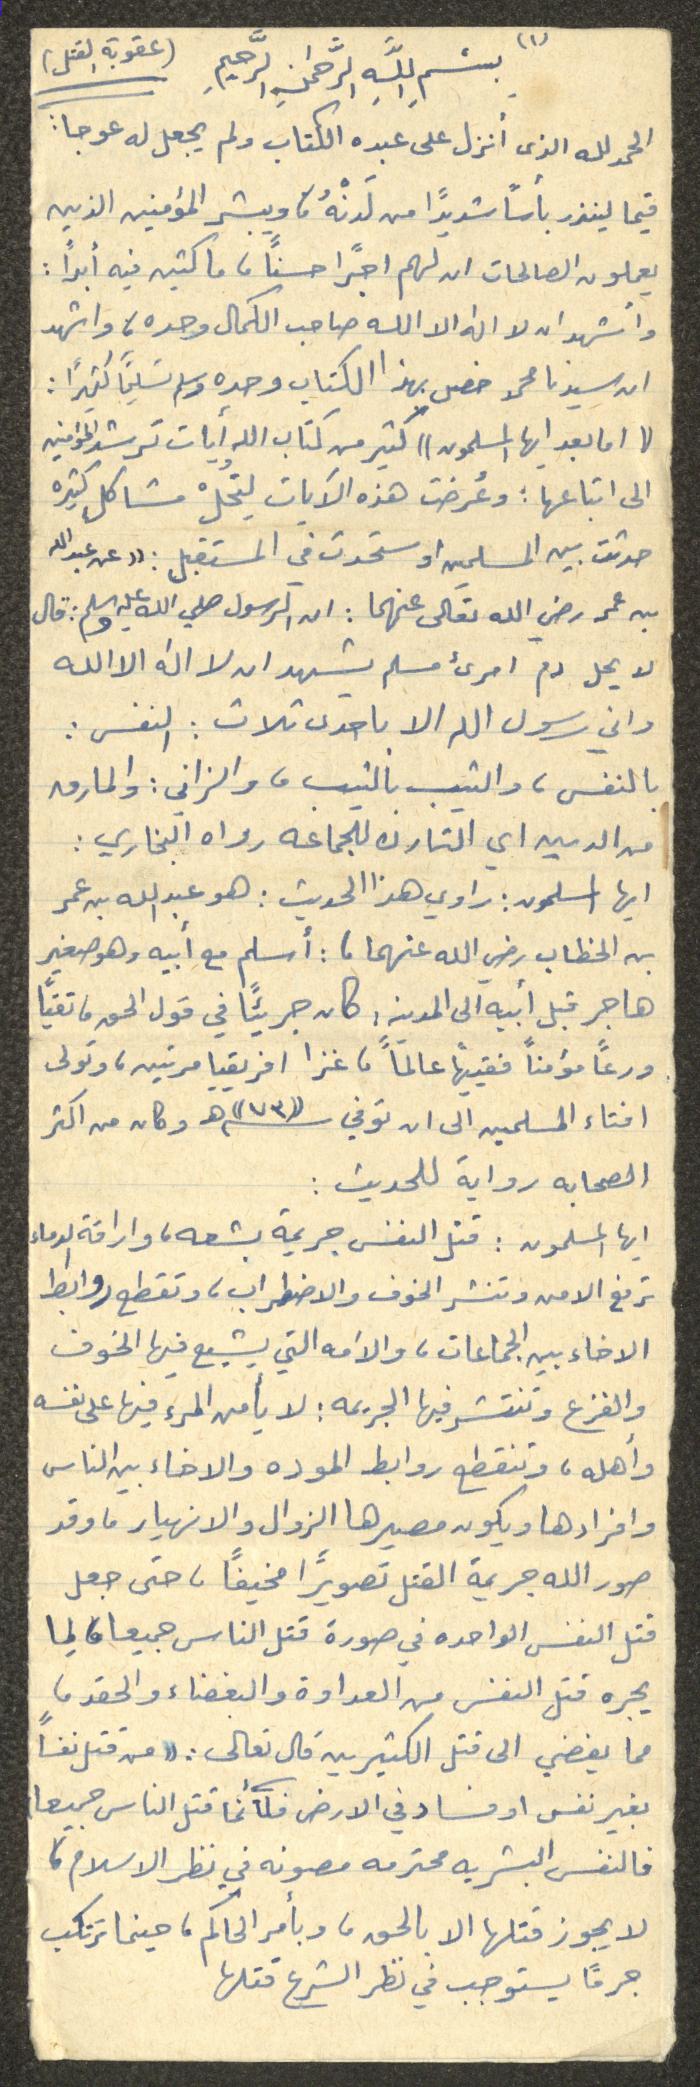 (١)
بِسْمِ اللَّهِ الرَّحْمٰنِ الرَّحِيمِ (عقوبة القتل)
الحمد لله الذى أنزل على عبده الكتاب ولم يجعل له عوجا:
قيما لينذر بأساً شديدًا من لَدُنْهُ، ويبشر المؤمنين الذين
يعملون الصالحات ان لهم اجرًا حسناً، ماكثين فيه أبداً:
وأشهد ان لا اله الا الله صاحب الكمال وحده، واشهد
ان سيدنا محمد خصل بهذا الكتاب وحده وسلم تسليمًا كثيرًا:
(( اما بعد ايها المسلمون )) كثير من كتاب الله أيات ترشد المؤمنين
الى اتباعها: وعُرضت هذه الآيات لِتحُلْ مشاكل كثيره
حدثت بين المسلمين او ستحدث في المستقبل: ((عن عبدالله
بن عمر رضي الله تعالى عنهما: ان الرسول صلي الله عليه وسلم: قال
لا يحل دم امرئ مسلم يشهد ان لا اله الا الله
واني رسول الله الا باحدى ثلاث: النفس:
بالنفس، والثيب بالثيب، والزاني: والمارق
من الدين اي التارك للجماعه رواه البخاري:
ايها المسلمون: راوي هذا الحديث: هو عبدالله بن عمر
بن الخطاب رضي الله عنهما،: أسلم مع أبيه وهو صغير
هاجر قبل أبيه الى المدينه، كان جريئًا في قول الحق، تقيًا
ورعاً مؤمناً فقيهاً عالماً، غزا افريقيا مرتين، وتولى
افتاء المسلمين الى ان توفي سنة ((٧٣)) هـ وكان من اكثر
الصحابه رواية للحديث:
ايها المسلمون: قتل النفس جريمة بشعه، واراقة الدماء
ترفع الامن وتنشر الخوف والاضطراب، وتقطع روابط
الاخاء بين الجماعات، والامه التي يشيع فيها الخوف
والفزع وتنتشر فيها الجريمه: لا يأمن المرء فيها على نفسه
وأهله، وتنقطع روابط الموده والاخاء بين الناس
وافرادها ويكون مصيرها الزوال والانهيار، وقد
صور الله جريمة القتل تصويرًا مخيفاً، حتى جعل
قتل النفس الواحده في صورة قتل الناس جميعا، لما
يجره قتل النفس من العداوة والبغضاء والحقد،
مما يفضي الى قتل الكثيرين قال تعالى: ((من قتل نفساً
بغير نفس او فساد في الارض فكأنما قتل الناس جميعا
فالنفس البشريه محترمه مصونه في نظر الاسلام،
لا يجوز قتلها الا بالحق، وبأمر الحاكم، حينما ترتكب
جرمًا يستوجب في نظر الشرع قتلها